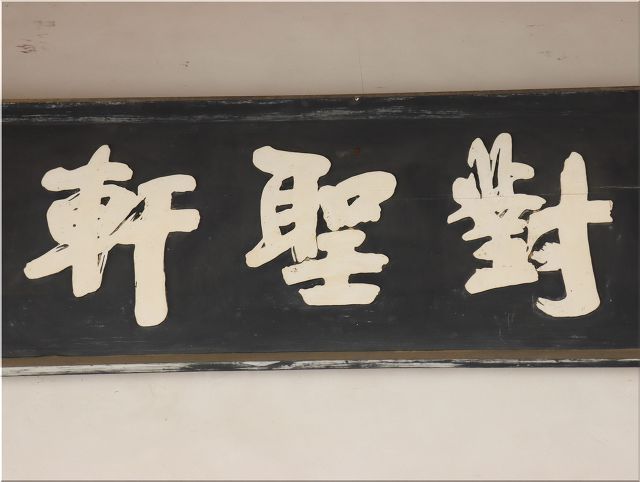 對聖軒